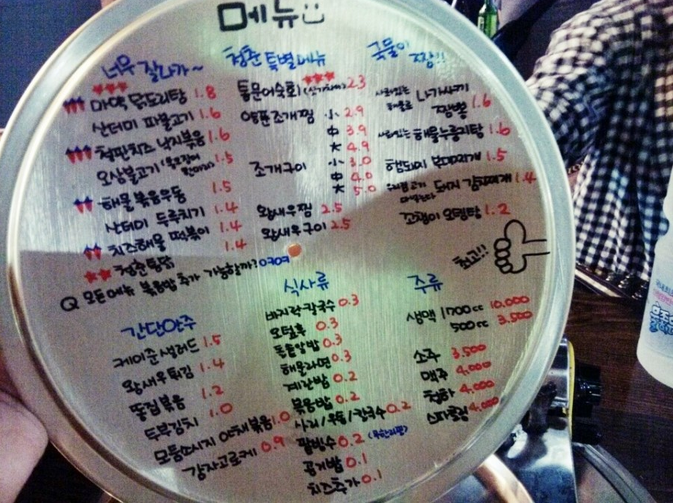 메뉴
너무 잘나가~
마약 닭도리탕 1.8
산더미 파불고기 1.6
철판치즈 낙지볶음 1.6
오삼불고기 1.5
해물볶음우동 1.5
산더미 두루치기 1.4
치즈해물 떡볶이 1.4
1.4
Q 모든메뉴 볶음밥 추가 가능할까? ㅇㅋㅇㅋ
청춘 특별메뉴
통문어숙회 2.3
조개찜 小 2.9
中 3.9
大 4.9
조개구이 小 3.0
中 4.0
大 5.0
왕새우찜 2.5
왕새우구이 2.5
국물이 짱!!
나가사끼
짬뽕 1.6
해물누룽지탕 1.6
햄돼지 부대찌개 1.5
돼지 김치찌개 1.4
꼬쟁이 오뎅탕 1.2
최고!!
간단안주
케이준 샐러드 1.5
왕새우튀김 1.4
똥집볶음 1.2
두부김치 1.0
모듬소시지 야채볶음 1.0
감자고로케 0.9
식사류
바지락칼국수 0.3
오털후 0.3
돌알밥 0.3
해물라면 0.3
계란밥 0.2
볶음밥 0.2
사리/우동/칼국수 0.2
팥빙수 0.2
공기밥 0.1
치즈추가 0.1
주류
생맥 1700cc 10,000
500cc 3,500
소주 3,500
맥주 4,000
청하 4,000
4,000